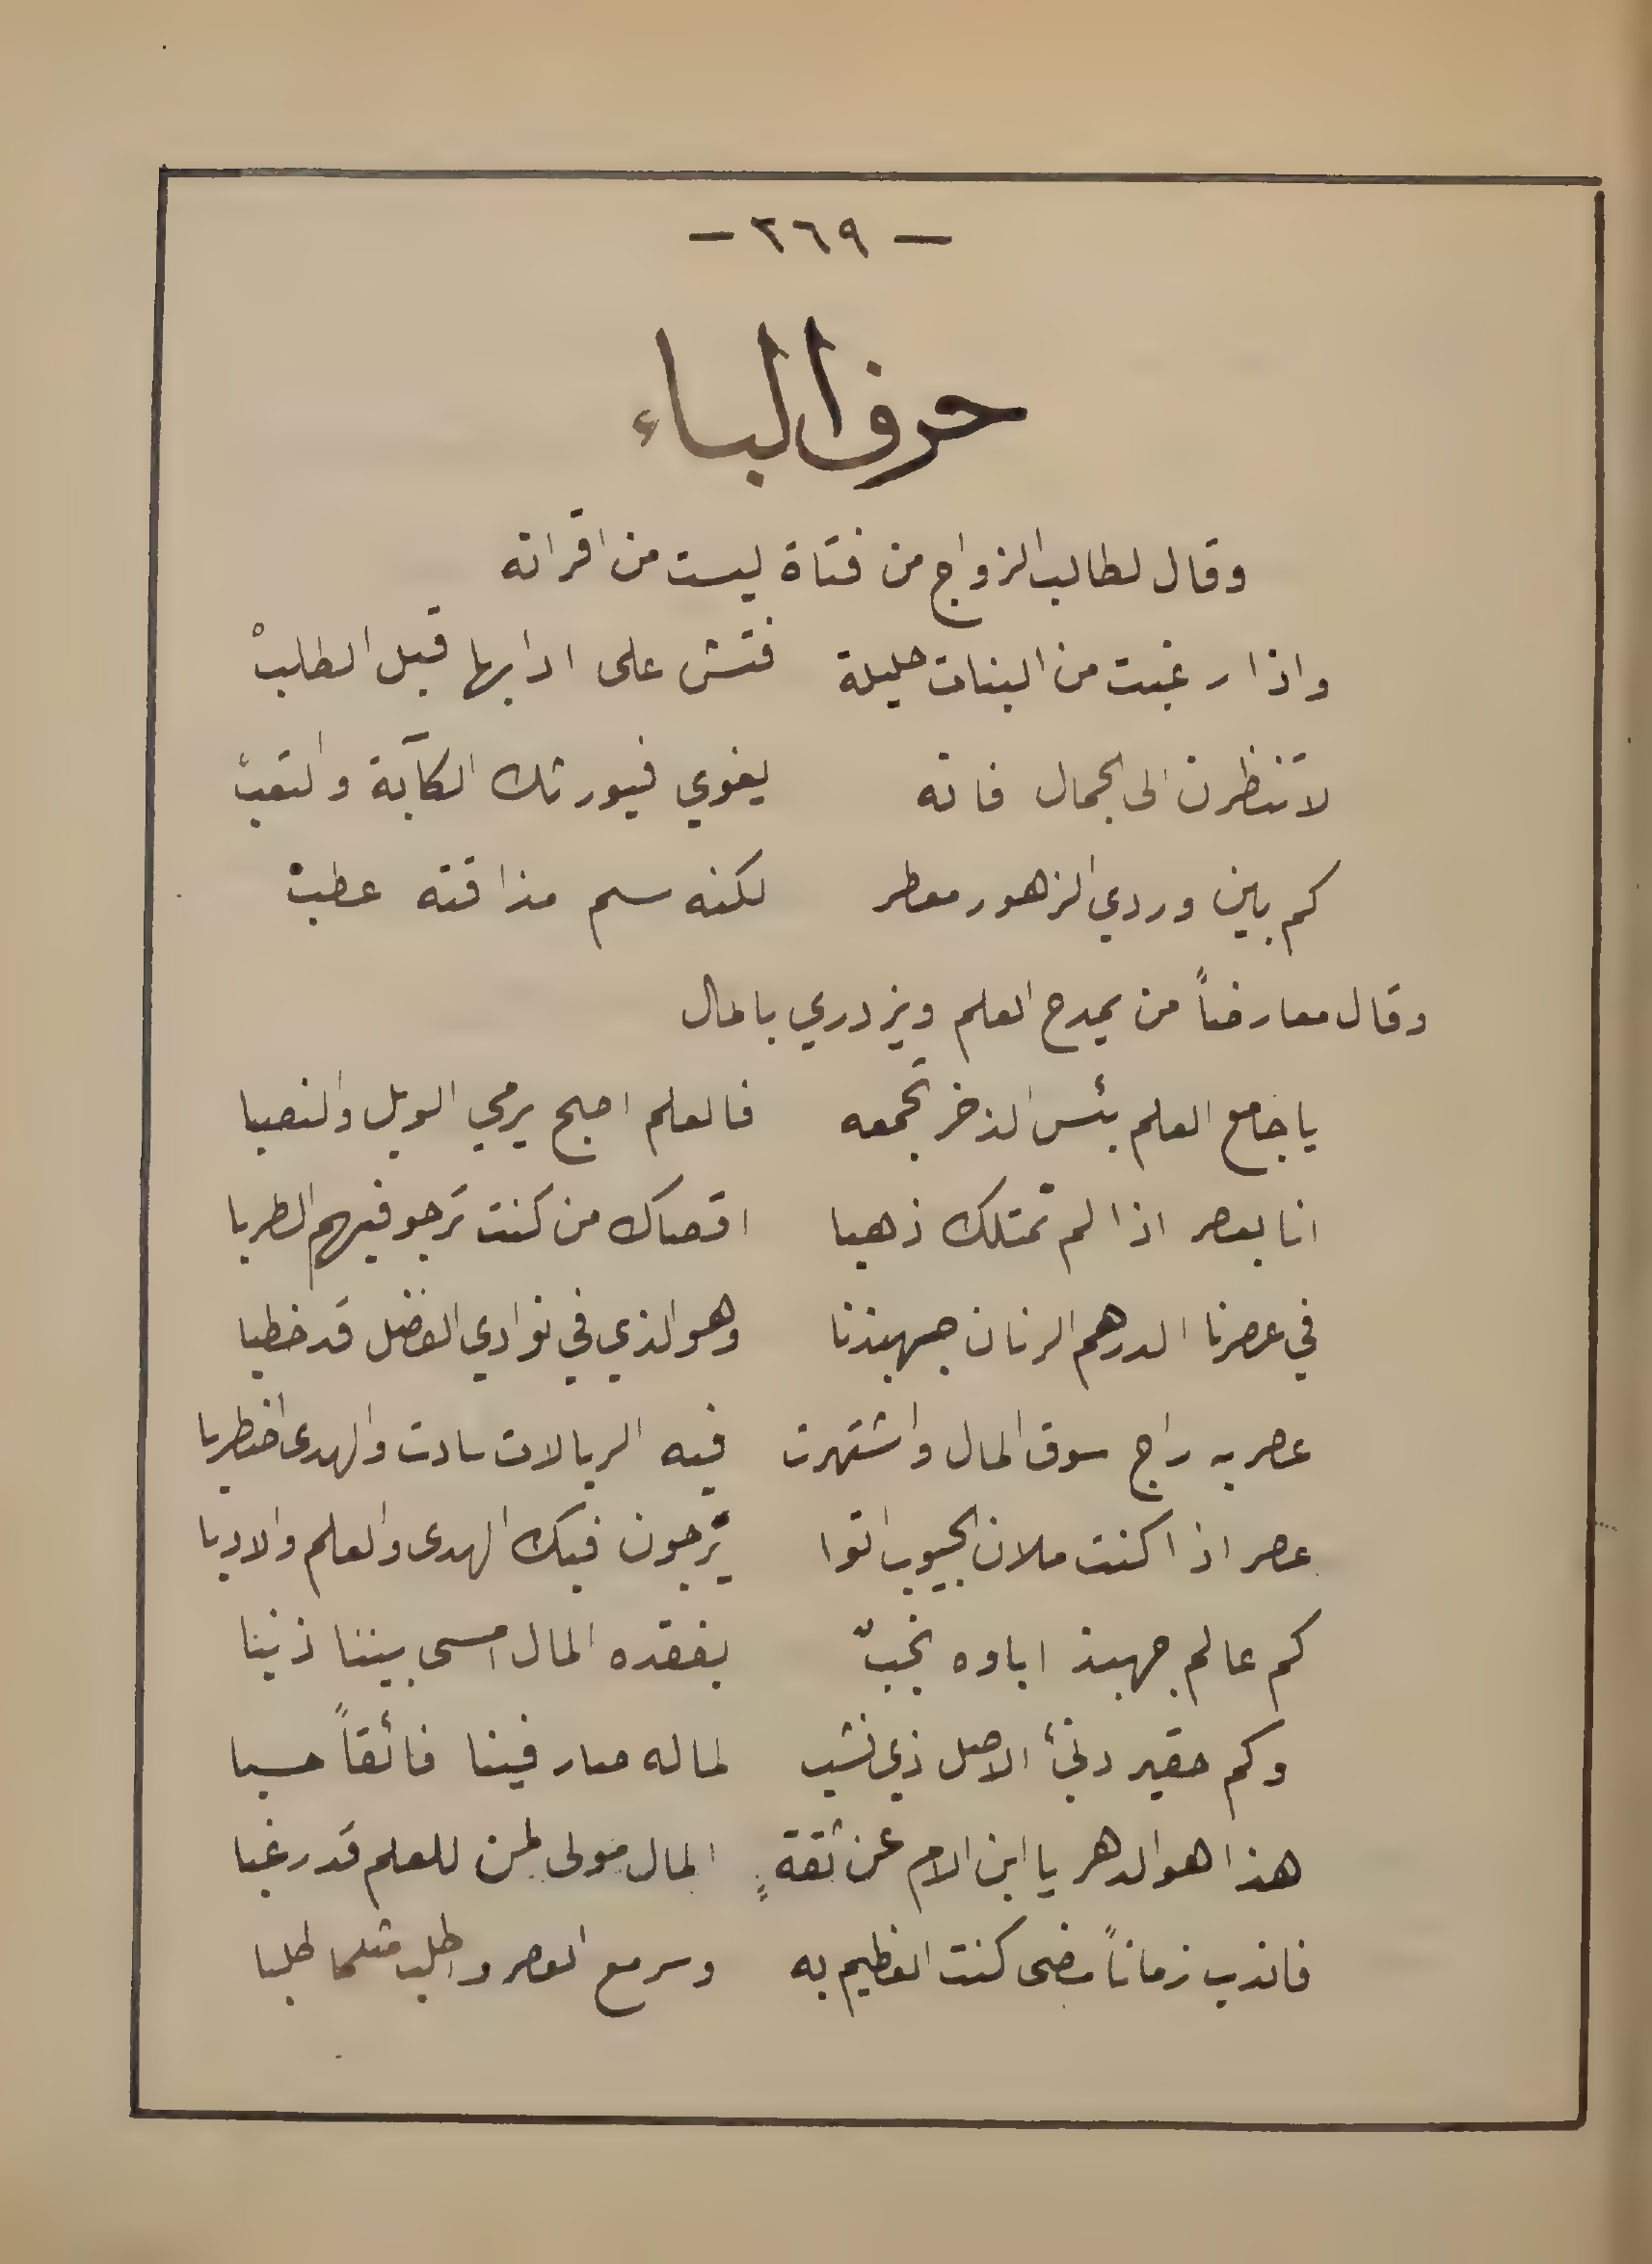 — ٢٦٩ —
حرف الباء
وقال لطالب الزواج من فتاة ليست من اقرانه
واذا رغبت من البنات حليلة فتش على ادابها قبل الطلبْ
لا تنظرن الى الجمال فانه يغوي فيورثك الكآبة والتعبْ
كم بين وردي الزهور معطر لكنه سم مذاقته عطبْ
وقال معارضاً من يمدح العلم ويزدري بالمال
يا جامع العلم بئس الذخر تجمعه فالعلم اصبح يرمي الويل والنصبا
انا بعصر اذا لم تمتلك ذهبا اقصاك من كنت ترجو فيهم الطربا
في عصرنا الدرهم الرنان جهبذنا وهو الذي في نوادي الفضل قد خطبا
عصر به راج سوق المال واشتهرت فيه الريالات سادت والهدى اضطربا
عصر اذا كنت ملان الجيوب اتوا يرجون فيك الهدى والعلم والادبا
كم عالم جهبذ اباوه نجبٌ بفقده المال امسى بيننا ذنبا
وكم حقير دنئ الاصل ذي نشب لماله صار فينا فائقاً حسبا
هذا هو الدهر يا ابن الام عن ثقةٍ المال مولى لمن للعلم قد رغبا
فاندب زماناً مضى كنت العظيم به وسر مع العصر واطلب مثلما طلبا